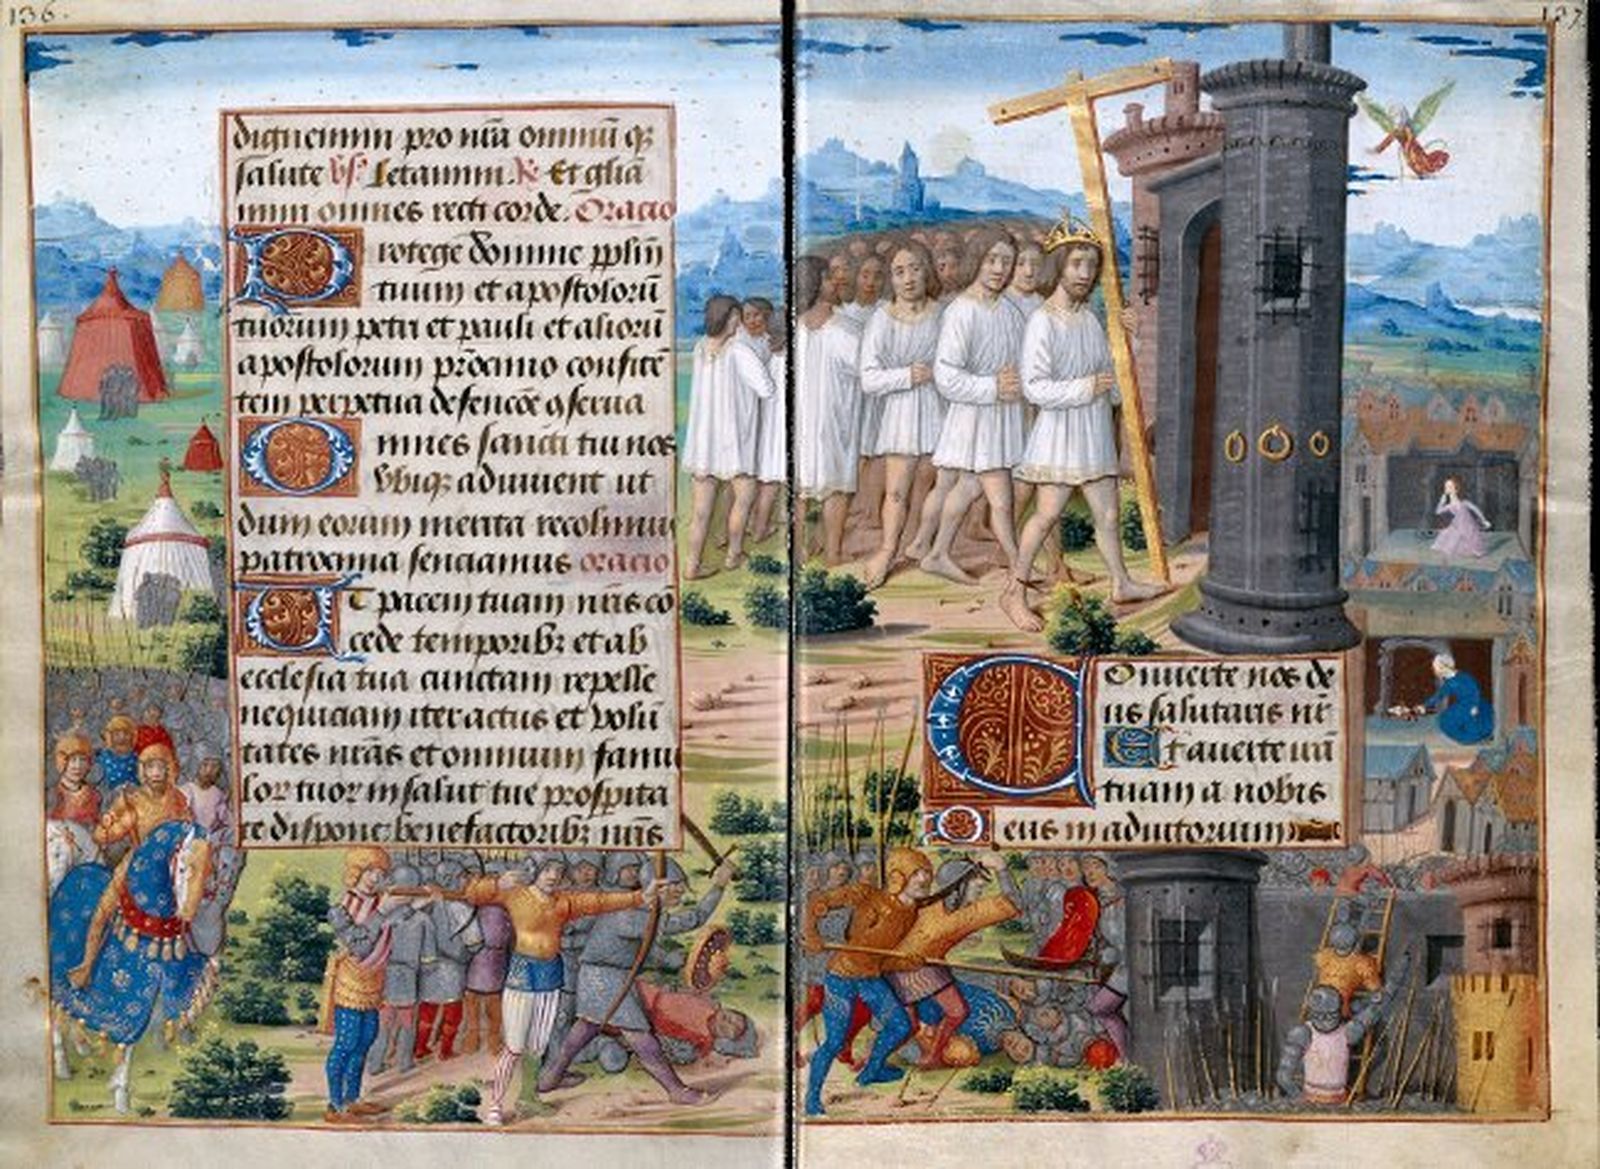 136.
dignemini pro nr̄a omniū qꝫ
salute v̄s. Letamini. ℟ Et gl̄ia
mini omnes recti corde. Oracio
Protege domine pp̄lm̄
tuum et apostolorū
tuorum petri et pauli et aliorū
apostolorum pr̄ocinio confitē
tem perpetua defencōe ꝯserua
Omnes sancti tui nos
vbiqꝫ adiuuent ut
dum eorum merita recolimus
patrocinia senciamus oracio
Et pacem tuam nr̄is cō
cede temporibꝫ et ab
ecclesia tua cunctam repelle
nequiciam iter actus et volū
tates nr̄as et omnium famu
lor tuor in salut tue prosp̄ita
te dispone: benefactoribꝫ nr̄is
137
Conuerte nos de
us salutaris nr̄
Et auerte irā
tuam a nobis
Deus in adiutorium